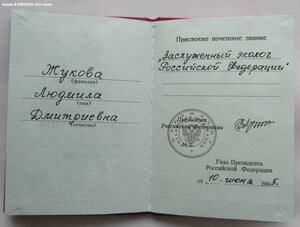 www.FORUMS-SU.com
Жукова
(фамилия)
Людмила
(имя)
Дмитриевна
(отчество)
Присвоено почетное звание
"Заслуженный эколог
Российской Федерации"
Президент
Российской Федерации
М.П.
Указ Президента
Российской Федерации
от 10 июня 2005 г.